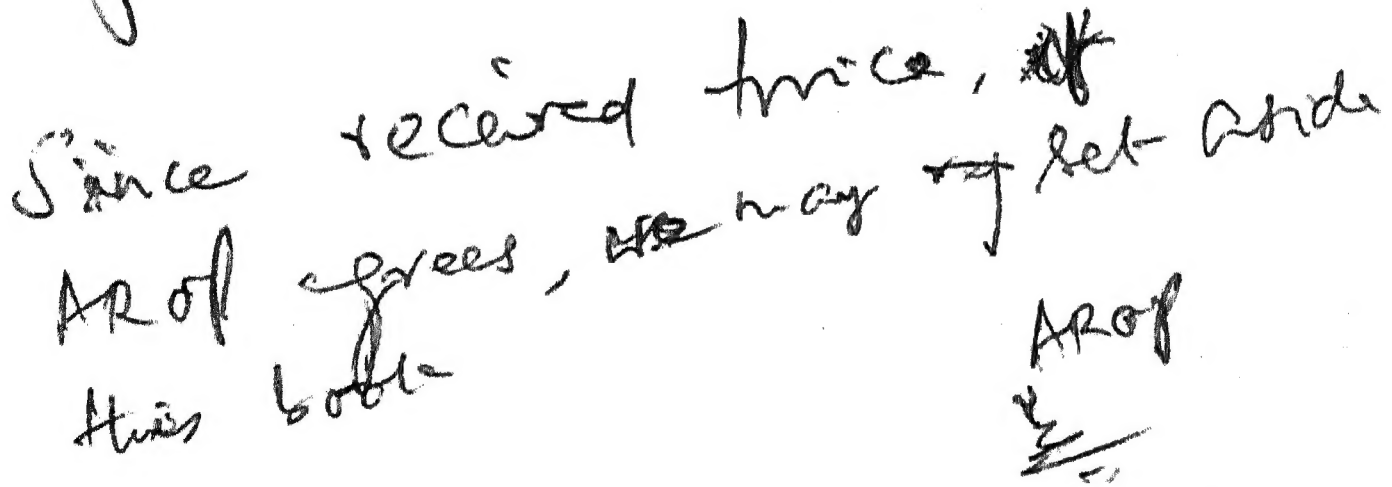 Since received twice, if
AROP agrees, we may set aside
this book
AROP